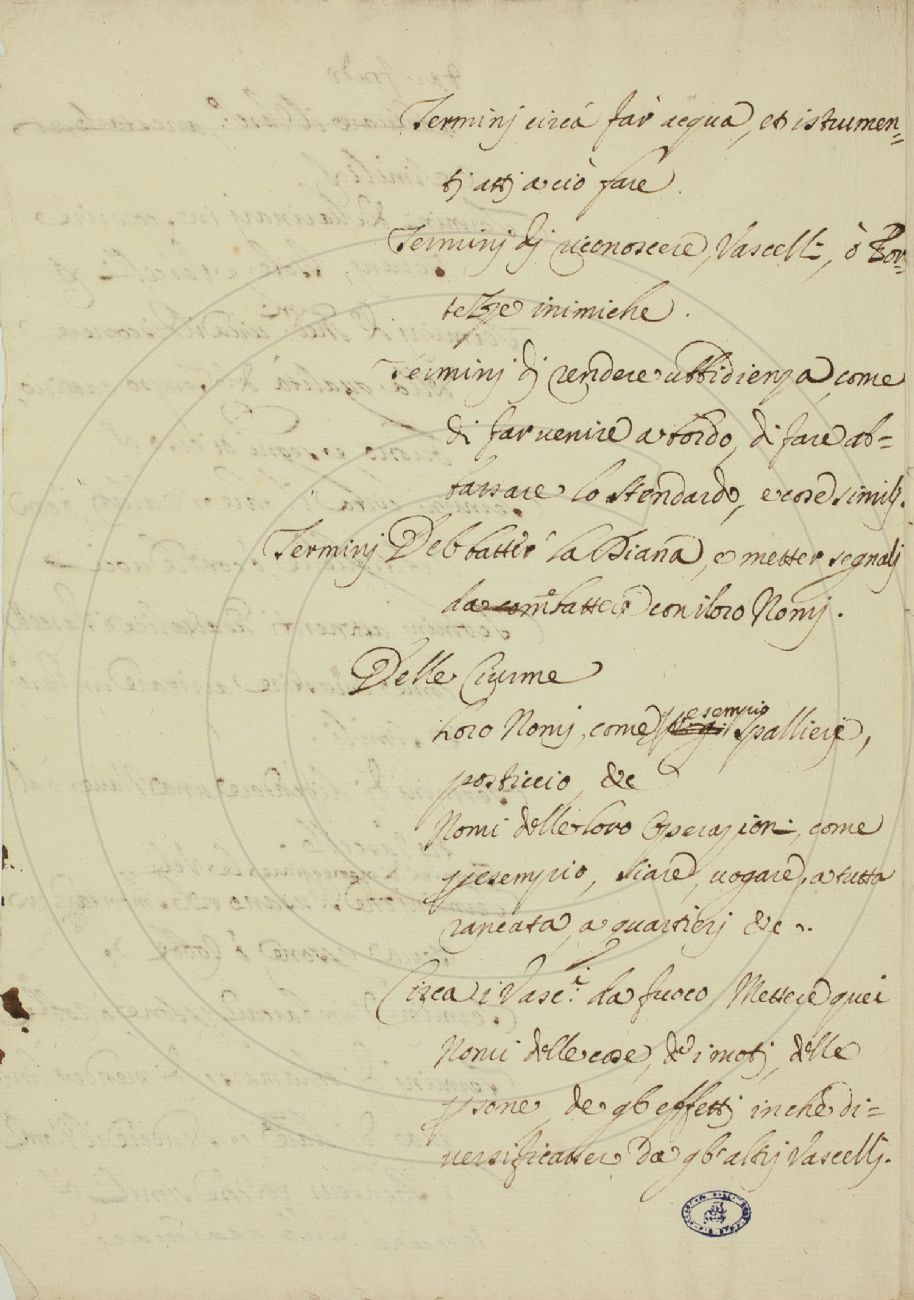 Terminj circa far acqua, et istrumen=
tj attj a ciò fare.
Terminj dj riconoscere, Vascelli, ò For=
tezze inimiche.
Terminj dj rendere ubbidienza, come
di far venire a bordo, di fare ab=
bassare lo stendardo, e cose similj.
Terminj Del battér la Diana, e metter segnalj
da combatteré con i loro Nomj.
Delle Ciurme
Loro Nomj, come p esempio Spallierj,
posticcio, &c
Nomi delle loro Operazioni, come
p esempio, siare, uogare, a tutta
rancata, a quartierj &c.
Circa i Vasc.i da fuoco, Mettere quei
Nomi delle cose, de i motj, delle
psone, de gli effettj in che di=
uersificasser da gli altrj Vascellj.